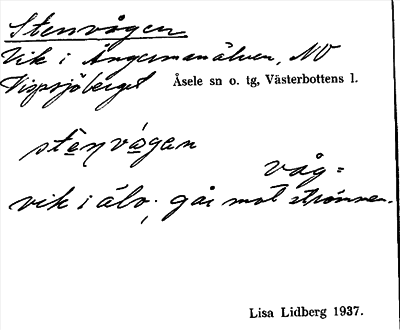 Stenvågen
Vik i Ångermanälven, NV
Vispsjöberget Åsele sn o. tg, Västerbottens l.
stènvågan
våg=
vik i älv; går mot strömmen.
Lisa Lidberg 1937.